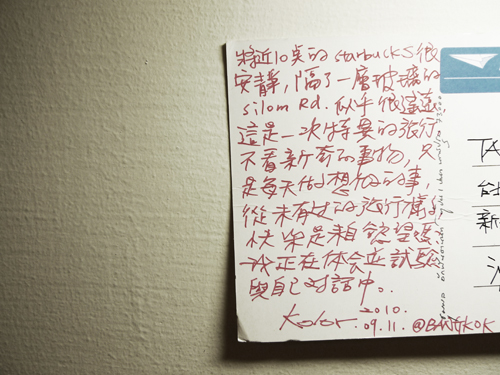 將近10點的 starbucks 很
安靜，隔了一層玻璃的
silom Rd. 似乎很遙遠
這是一次特異的旅行
不看新奇的事物，只
是每天做想做的事，
從未有过的旅行
快樂是來自慾望嗎
我正在体会並試驗
與自己对話中。
Kolor. 2010.
09.11. @BANGKOK
TA
新